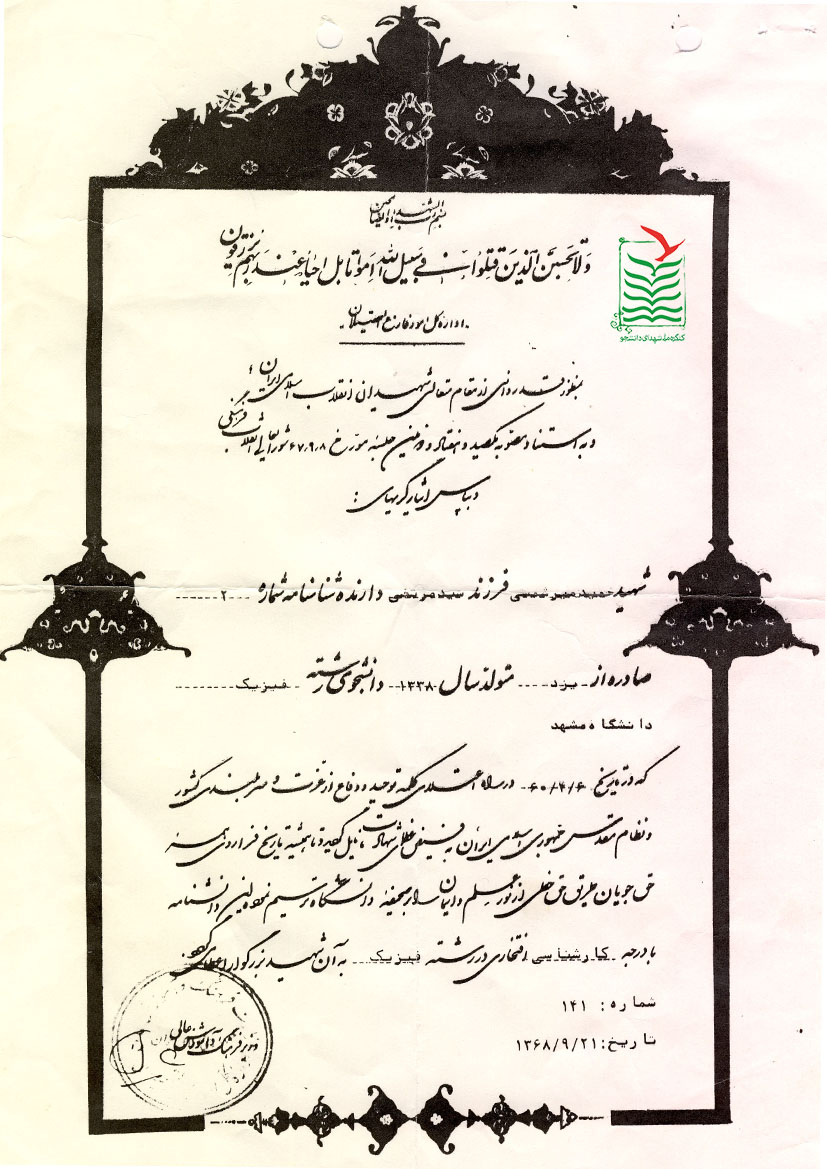 بسم رب الشهداء والصدیقین
ولا تحسبن الذین قتلوا فی سبیل الله امواتا بل احیاء عند ربهم یرزقون
اداره کل امور فارغ التحصیلان
کنگره ملی شهدای دانشجو
بمنظور قدردانی از مقام متعالی شهیدان انقلاب اسلامی ایران
و به استناد مصوبه یکصد و هفتاد و دومین جلسه مورخ ۶۷/۹/۸ شورایعالی انقلاب فرهنگی
و بپاس ایثارگریهای :
شهید حمید میرشمسی فرزند سیدمرتضی دارنده شناسنامه شماره ۲
صادره از یزد متولد سال ۱۳۳۸ دانشجوی رشته فیزیک
دانشگاه مشهد
که در تاریخ ۶۰/۴/۶ در راه اعتلای کلمه توحید و دفاع از عزت و سربلندی کشور
و نظام مقدس جمهوری اسلامی ایران به فیض عظمای شهادت نایل گردید و تا همیشه تاریخ فرا روی همه
حق جویان طریق حق خطی از نور علم و ایمان را بر صحیفه دانشگاه ترسیم نموده این دانشنامه
با درجه کارشناسی افتخاری در رشته فیزیک به آن شهید بزرگوار اعطا می گردد
شماره: ۱۴۱
تاریخ: ۱۳۶۸/۹/۲۱
وزیر فرهنگ و آموزش عالی